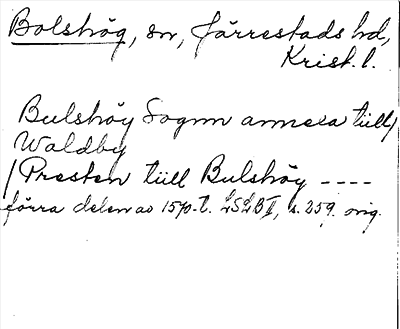 Bolshög, sn, Järrestads hd,
Krist. l.
Bulshöy Sognn annexa tüll/
Waldby
/Presten tüll Bulshöy ----
förra delen av 1570-t. LSLB II, s. 259. orig.